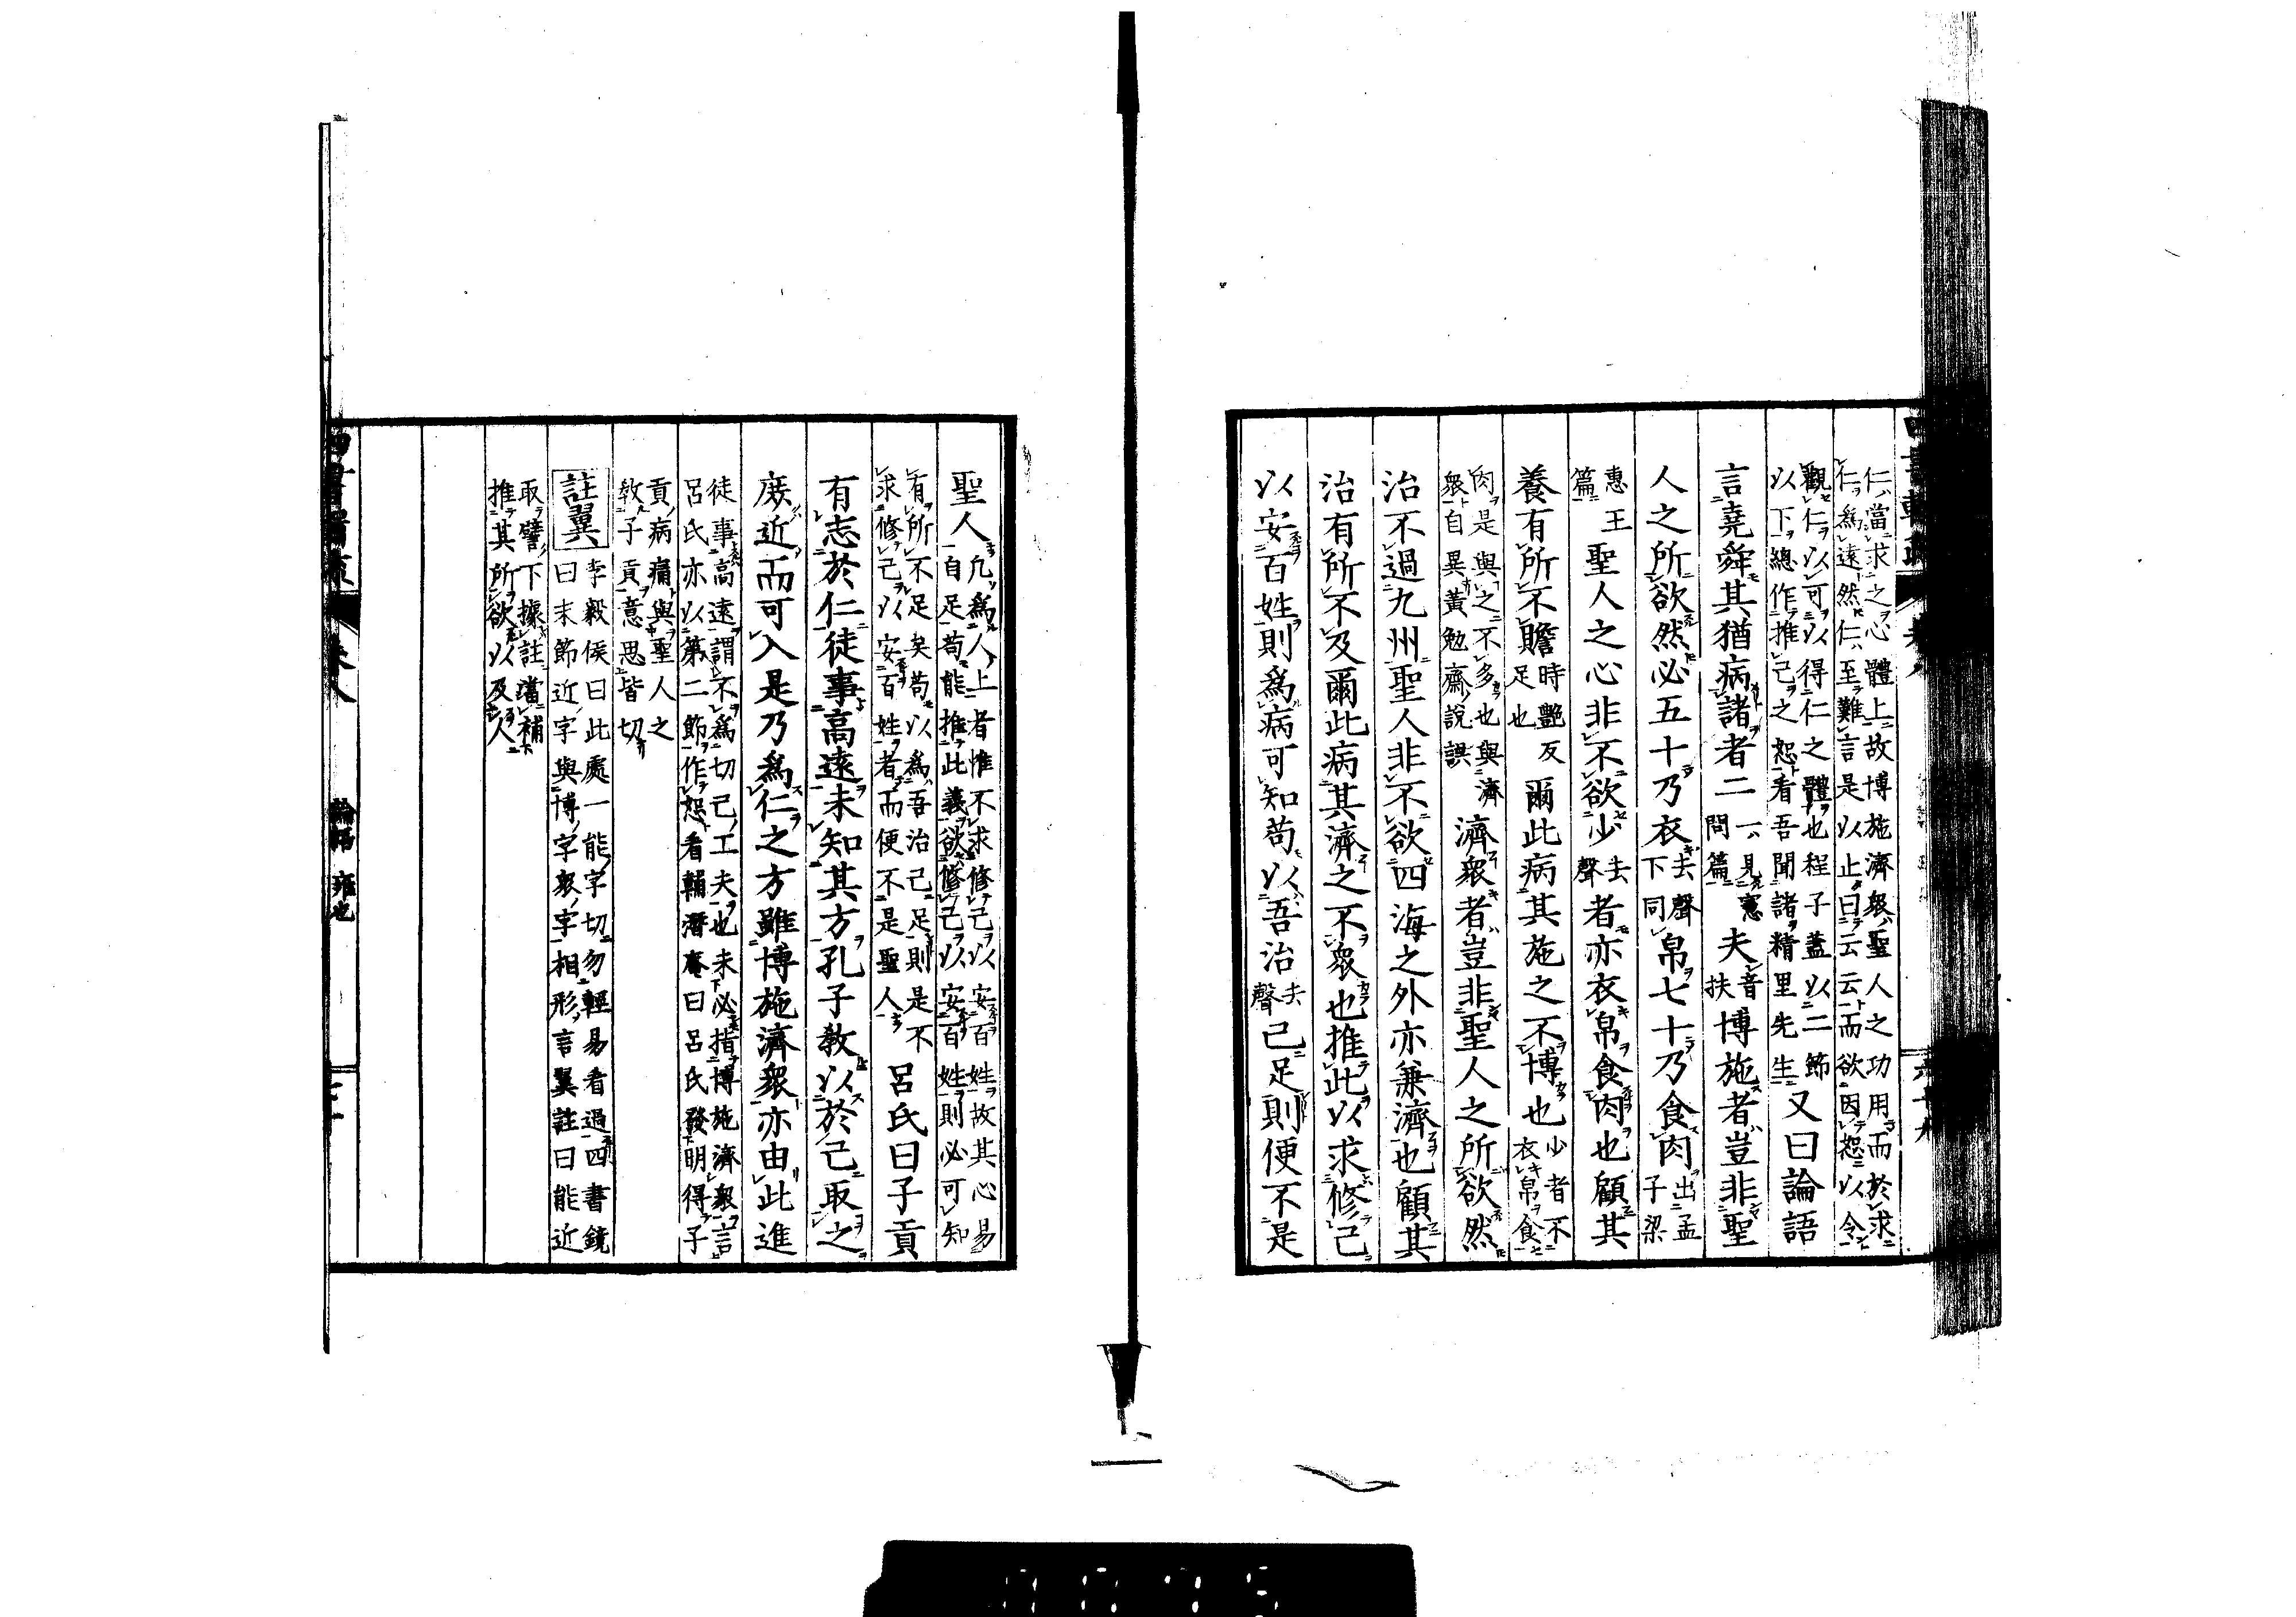 仁當求之心體上故博施濟衆聖人之功用而於求
仁爲遠然仁至難言是以止曰云云而欲因恕以令
觀仁以可以得仁之體也程子蓋以二節
以下總作推己之恕看吾聞諸精里先生
又曰論語
言堯舜其猶病諸者二
一見憲
問篇
夫
音
扶
博施者豈非聖
人之所欲然必五十乃衣
去聲
下同
帛七十乃食肉
出孟
子梁
惠王
篇
聖人之心非不欲少
去
聲
者亦衣帛食肉也顧其
養有所不贍
時艷反
足也
爾此病其施之不博也
少者不
衣帛食
肉是與之不多也與濟
衆自異黃勉齋說誤
濟衆者豈非聖人之所欲然
治不過九州聖人非不欲四海之外亦兼濟也顧其
治有所不及爾此病其濟之不衆也推此以求修己
以安百姓則爲病可知苟以吾治
去
聲
己足則便不是
聖人
凡爲人上者惟不求修己以安百姓故其心易
自足苟能推此義欲修己以安百姓則必可知
有所不足矣苟以爲吾治己足則是不
求修己以安百姓者而便不是聖人
呂氏曰子貢
有志於仁徒事高遠未知其方孔子敎以於己取之
庶近而可入是乃爲仁之方雖博施濟衆亦由此進
徒事高遠謂不爲切己工夫也未必指博施濟衆言
呂氏亦以第二節作恕看輔潛庵曰呂氏發明得子
貢病痛與聖人之
敎子貢意思皆切
註翼
李毅侯曰此處一能字切勿輕易看過四書鏡
曰末節近字與博字衆字相形言翼註曰能近
取譬下據註當補
推其所欲以及人
卷八
論語 雍也